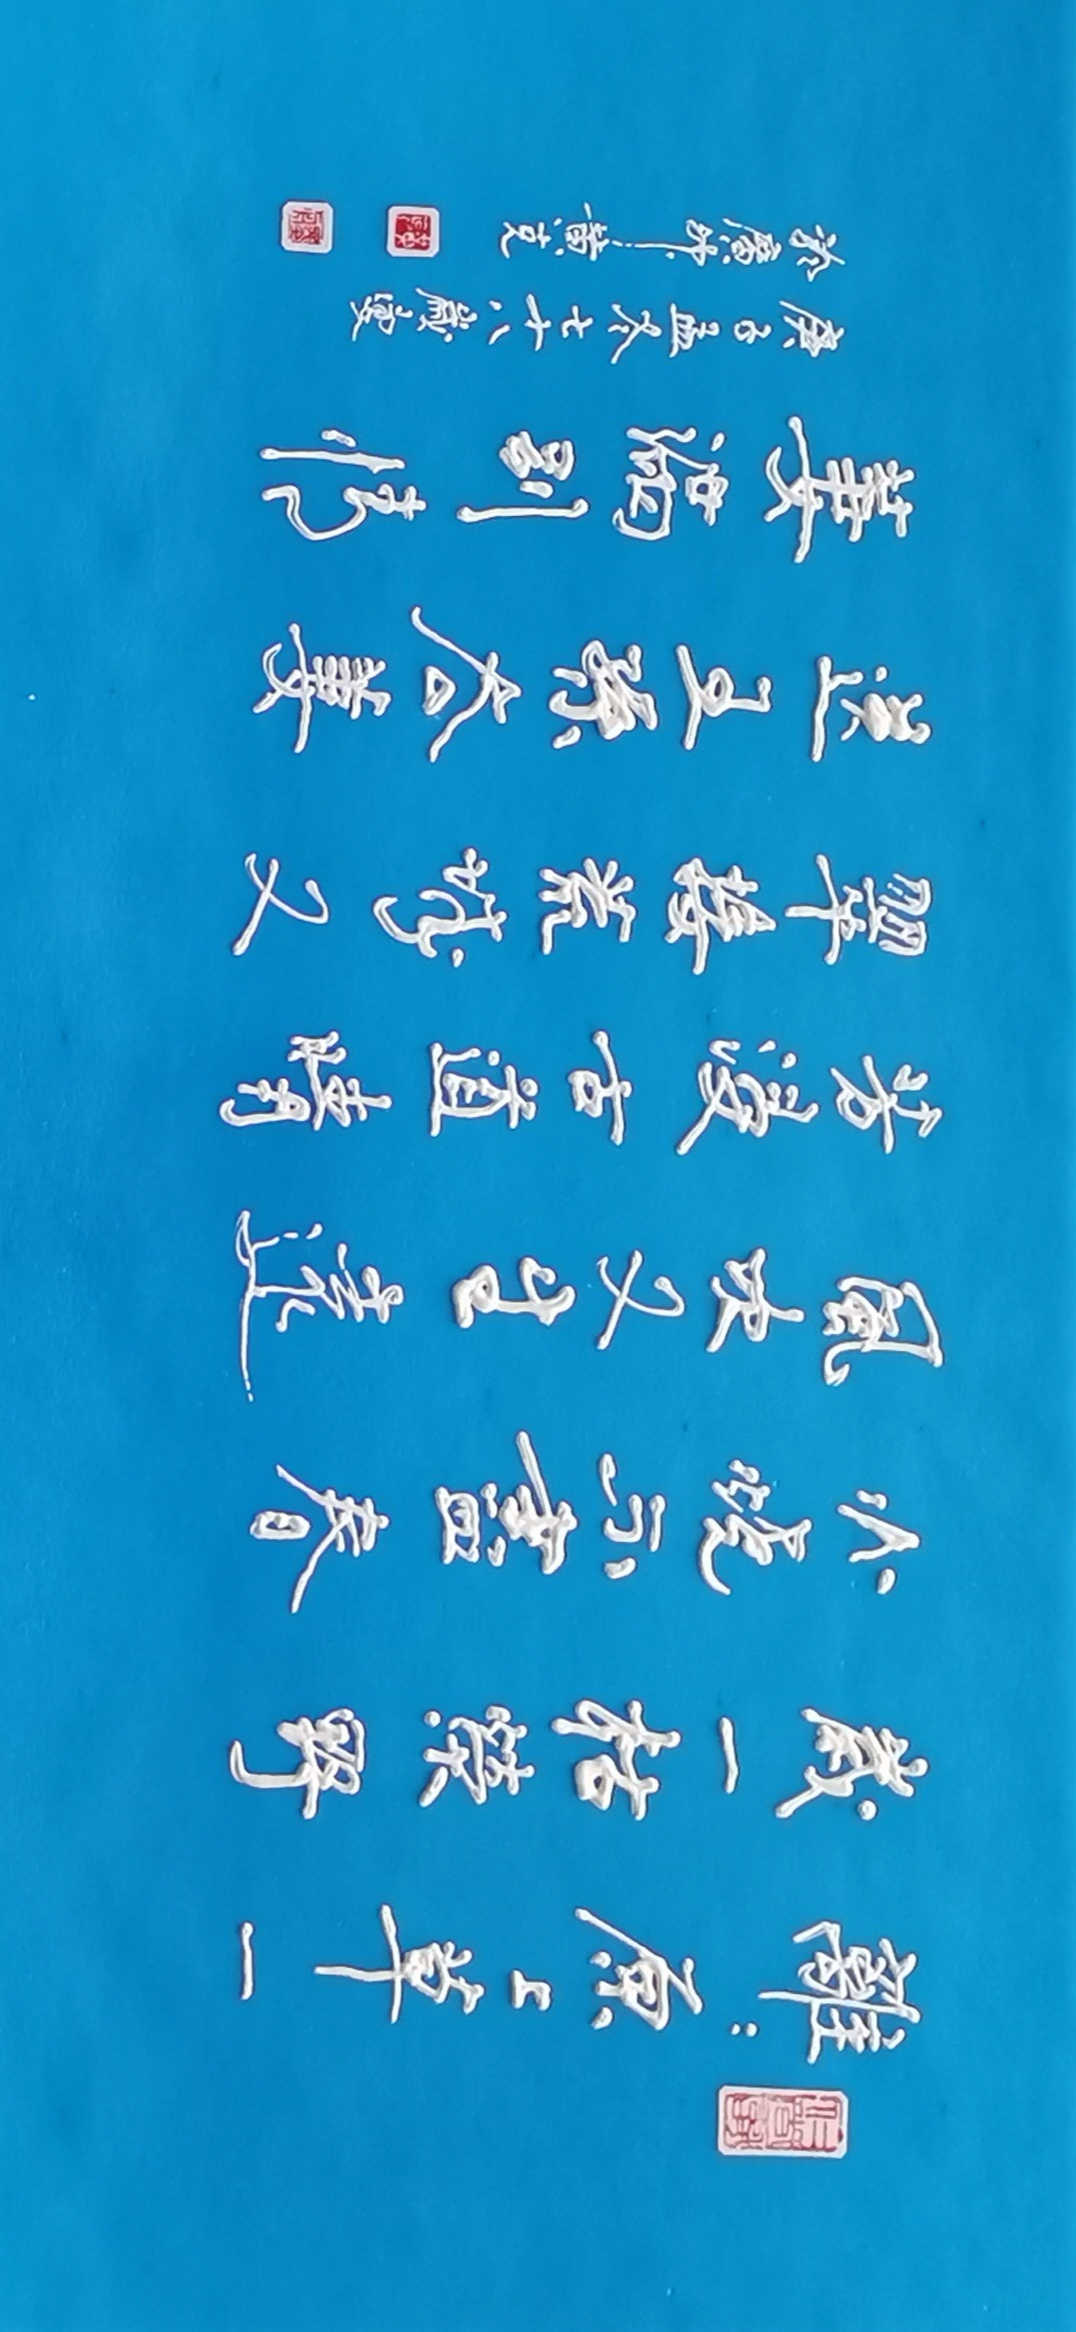 離々原上草一
歲一枯榮野
火燒不盡春
風吹又生遠
芳侵古道晴
翠接荒城又
送王孫去萋
萋滿別情
庚子孟冬七十八歲叟
於廣州